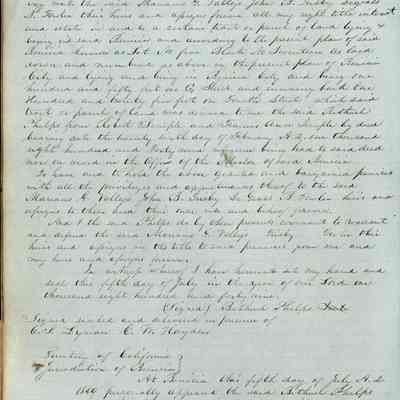 said Mariano G. Vallejo John B. Frisby
S. Fowler their heirs and assigns forever all my right title interest
and estate in and to a certain tract or parcel of land lying &
being in said Benicia and according to the present plan of said
Benicia known as Lot No five Block No Seventeen as laid
down and numbered as above in the present plan of Benicia
City and lying and being in Benicia City and being one
hundred and fifty feet on G Street and running back One
Hundred and twenty five feet on Fourth Street which said
tract or parcel of land was deeded to me the said Bethuel
Phelps from Robert Semple and Frances Ann Semple by deed
bearing date the twenty eighth day of February A.D. one thousand
eight hundred and forty nine reference being had to said deed
now on record in the Office of the Alcalde of said Benicia
To have and to hold the above granted and bargained premises
with all the privileges and appurtenances thereof to the said
Mariano G. Vallejo John B. Frisby heirs and
assigns to them and their own use and behoof forever
And I the said Phelps do by these presents covenant to warrant
and defend the said Mariano G Vallejo Frisby
heirs and assigns in the title to said premises from me and
my heirs and assigns forever
In witness whereof I have hereunto set my hand and
seal this fifth day of July in the year of our Lord one
thousand eight hundred and forty nine
(Signed) Bethuel Phelps
Signed sealed and delivered in presence of
C. S. Lyman C. W. Hayden
Territory of California
Jurisdiction of Benicia
At Benicia this fifth day of July A.D.
personally appeared the said Bethuel Phelps